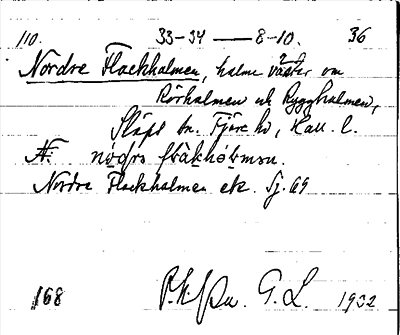 110. 33-34 — 8-10. 36
Nordre Flackholmen, holme väster om
Rörholmen och Ryggholmen,
Släps sn. Fjäre hd, Hall. l.
Nordre Flackholmen ek. Sj. 69
168 G. L. 1932